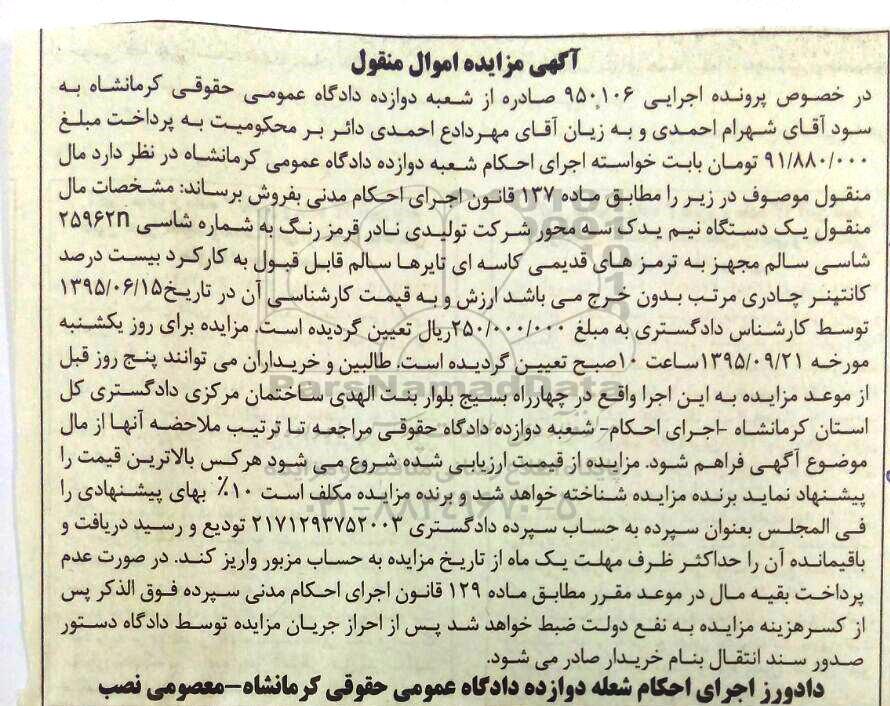 آگهی مزایده اموال منقول
در خصوص پرونده اجرایی ۹۵۰۱۰۶ صادره از شعبه دوازده دادگاه عمومی حقوقی کرمانشاه به
سود آقای شهرام احمدی و به زیان آقای مهردادع احمدی دائر بر محکومیت به پرداخت مبلغ
۹۱/۸۸۰/۰۰۰ تومان بابت خواسته اجرای احکام شعبه دوازده دادگاه عمومی کرمانشاه در نظر دارد مال
منقول موصوف در زیر را مطابق ماده ۱۳۷ قانون اجرای احکام مدنی بفروش برساند: مشخصات مال
منقول یک دستگاه نیم یدک سه محور شرکت تولیدی نادر قرمز رنگ به شماره شاسی ۲۵۹۶۲n
شاسی سالم مجهز به ترمز های قدیمی کاسه ای تایرها سالم قابل قبول به کارکرد بیست درصد
کانتینر چادری مرتب بدون خرج می باشد ارزش و به قیمت کارشناسی آن در تاریخ۱۳۹۵/۰۶/۱۵
توسط کارشناس دادگستری به مبلغ ۲۵۰/۰۰۰/۰۰۰ریال تعیین گردیده است. مزایده برای روز یکشنبه
مورخه ۱۳۹۵/۰۹/۲۱ساعت ۱۰صبح تعیین گردیده است. طالبین و خریداران می توانند پنج روز قبل
از موعد مزایده به این اجرا واقع در چهارراه بسیج بلوار بنت الهدی ساختمان مرکزی دادگستری کل
استان کرمانشاه -اجرای احکام- شعبه دوازده دادگاه حقوقی مراجعه تا ترتیب ملاحضه آنها از مال
موضوع آگهی فراهم شود. مزایده از قیمت ارزیابی شده شروع می شود هرکس بالاترین قیمت را
پیشنهاد نماید برنده مزایده شناخته خواهد شد و برنده مزایده مکلف است ۱۰٪ بهای پیشنهادی را
فی المجلس بعنوان سپرده به حساب سپرده دادگستری ۲۱۷۱۲۹۳۷۵۲۰۰۳ تودیع و رسید دریافت و
باقیمانده آن را حداکثر ظرف مهلت یک ماه از تاریخ مزایده به حساب مزبور واریز کند. در صورت عدم
پرداخت بقیه مال در موعد مقرر مطابق ماده ۱۲۹ قانون اجرای احکام مدنی سپرده فوق الذکر پس
از کسرهزینه مزایده به نفع دولت ضبط خواهد شد پس از احراز جریان مزایده توسط دادگاه دستور
صدور سند انتقال بنام خریدار صادر می شود.
دادورز اجرای احکام شعله دوازده دادگاه عمومی حقوقی کرمانشاه-معصومی نصب
ParsNamadData
۰۲۱-۸۸۳۴۹۶۷۰-۵